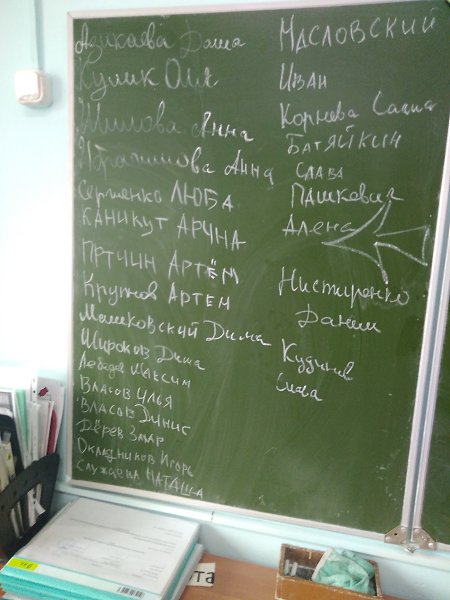 Азикаева Даша
Кулик Оля
Шилова Анна
Ибрагимова Анна
Сергиенко ЛЮБА
КАНИКУТ АРИНА
АРТЁМ
Крупнов АРТЕМ
Машковский Дима
Широков Дима
Лебедев Максим
Власов Илья
Власов Динис
Дерев
Окладников Игорь
Служаева НАТАША
МАСЛОВСКИЙ
ИВАН
Корнева Саша
БАТЯЙКИН
СЛАВА
ПАШКЕВИЧ
Алена
Нистиренко
Данил
Кудинов